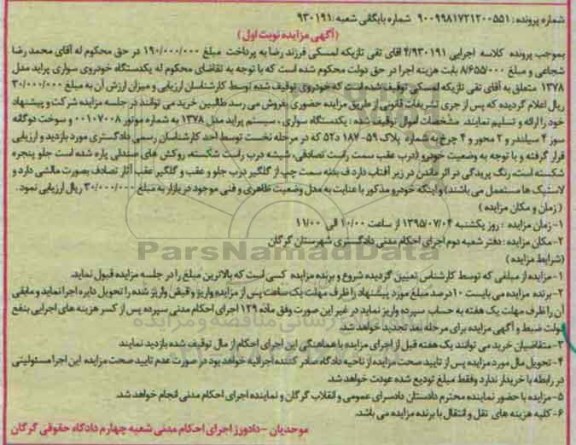 شماره پرونده: ۹۰۰۹۹۸۱۷۲۱۲۰۰۵۵۱ شماره بایگانی شعبه: ۹۳۰۱۹۱
(آگهی مزایده نوبت اول)
بموجب پرونده کلاسه اجرایی ۴/۹۳۰۱۹۱ آقای تقی تازیکه لمسکی فرزند رضا به پرداخت مبلغ ۱۹۰/۰۰۰/۰۰۰ در حق محکوم له آقای محمد رضا
شجاعی و مبلغ ۸/۶۵۵/۰۰۰ بابت هزینه اجرا در حق دولت محکوم شده است که با توجه به تقاضای محکوم له یکدستگاه خودروی سواری پراید مدل
۱۳۷۸ متعلق به آقای تقی تازیکه لمسکی توقیف شده است که خودروی توقیف شده توسط کارشناسان ارزیابی و میزان ارزش آن به مبلغ ۳۰/۰۰۰/۰۰۰
ریال اعلام گردیده که پس از جری تشریفات قانونی از طریق مزایده حضوری بفروش می رسد طالبین خرید می توانند در جلسه مزایده شرکت و پیشنهاد
خود را ارائه و تسلیم نمایند. مشخصات اموال توقیف شده: یکدستگاه سواری، سیستم پراید مدل ۱۳۷۸ به شماره موتور ۰۰۱۰۷۰۰۸ و سوخت دوگانه
سوز ۴ سیلندر و ۲ محور و ۴ چرخ به شماره پلاک ۵۹-۱۸۷ د۵۲ که در مرحله نخست توسط احد کارشناسان رسمی دادگستری مورد بازدید و ارزیابی
قرار گرفته و با توجه به وضعیت خودرو (درب عقب سمت راست تصادفی، شیشه درب راست شکسته، روکش های صندلی پاره شده است جلو پنجره
شکسته است، رنگ پریدگی در اثر ماندن در زیر آفتاب دارد ف بدنه سمت چپ از گلگیر درب جلو و عقب و گلگیر عقب آثار تصادف بصورت مالشی دارد و
لاستیک ها مستعمل می باشند) و اینکه خودرو مذکور با عنایت به مدل وضعیت ظاهری و فنی موجود در بازار به مبلغ ۳۰/۰۰۰/۰۰۰ ریال ارزیابی نمود.
(زمان و مکان مزایده)
۱- زمان مزایده: روز یکشنبه ۱۳۹۵/۰۷/۰۴ از ساعت ۱۰/۰۰ الی ۱۱/۰۰
۲- مکان مزایده: دفتر شعبه دوم اجرای احکام مدنی دادگستری شهرستان گرگان
(شرایط مزایده)
۱- مزایده از مبلغی که توسط کارشناس تعیین گردیده شروع و برنده مزایده کسی است که بالاترین مبلغ را در جلسه مزایده قبول نماید.
۲- برنده مزایده می بایست ۱۰ درصد مبلغ مورد پیشنهاد را ظرف مهلت یک ساعت پس از مزایده واریز و قبض واریز شده را تحویل دایره اجرا نماید و مابقی
آن را ظرف مهلت یک هفته به حساب سپرده واریز نماید در غیر این صورت وفق ماده ۱۲۹ اجرای احکام مدنی سپرده پس از کسر هزینه های اجرایی بنفع
دولت ضبط و آگهی مزایده برای مرحله بعد تجدید خواهد شد.
۳- متقاضیان خرید می توانند یک هفته قبل از اجرای مزایده با هماهنگی این اجرای احکام از مال توقیف شده بازدید نمایند
۴- تحویل مال مورد مزایده پس از تایید صحت مزایده از ناحیه دادگاه صادر کننده اجرائیه خواهد بود در صورت عدم تایید صحت مزایده این اجرا مسئولیتی
در رابطه با خریدار ندارد و فقط مبلغ تودیع شده عودت خواهد شد.
۵- مزایده با حضور نماینده محترم دادستان دادسرای عمومی و انقلاب گرگان و نماینده اجرای احکام مدنی انجام خواهد شد.
۶- کلیه هزینه های نقل و انتقال با برنده مزایده می باشد.
موحدیان - دادورز اجرای احکام مدنی شعبه چهارم دادگاه حقوقی گرگان
ParsNamadData